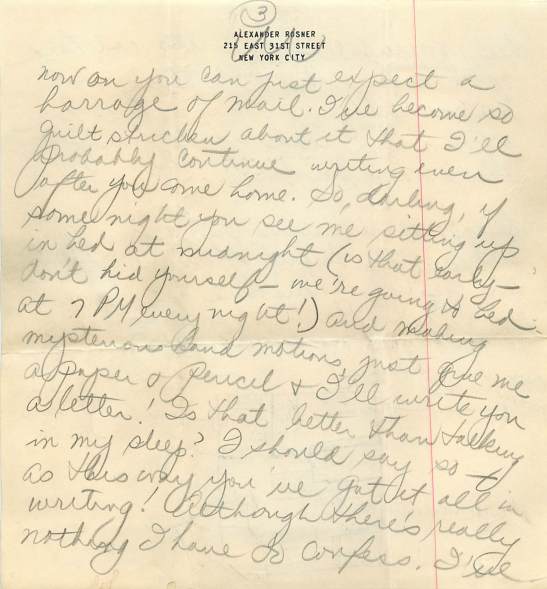 3
ALEXANDER ROSNER
215 EAST 31ST STREET
NEW YORK CITY
now on you can just expect a
barrage of mail. I've become so
guilt stricken about it that I'll
probably continue writing even
after you come home. So, darling, if
some night you see me sitting up
in bed at midnight (is that early –
don't kid yourself – we're going to bed
at 7 PM every night!) and making
mysterious hand motions, just give me
a paper & pencil & I'll write you
a letter! Is that better than talking
in my sleep? I should say so –
as this way you've got it all in
writing! Although there's really
nothing I have to confess. I've